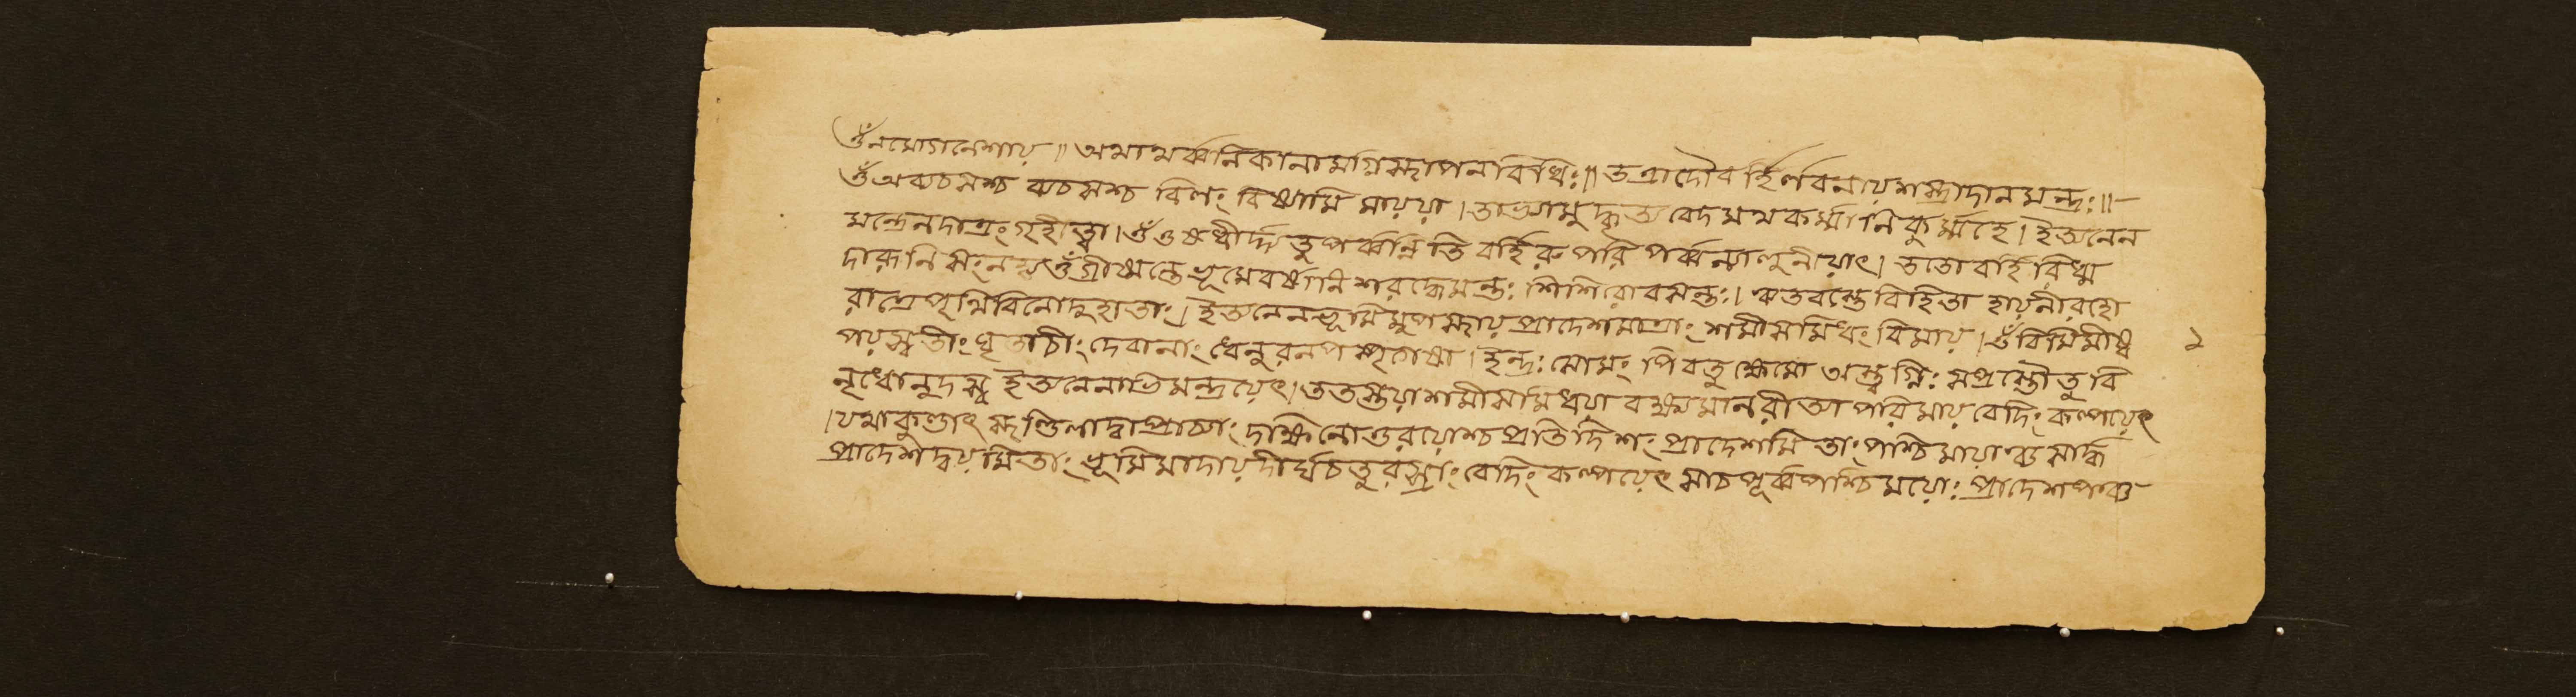 ওঁ নমোগনেশায় ॥ অথাথর্ব্বনিকানামগ্নিস্থাপনবিধিঃ ॥ তত্রাদৌবর্হির্লবনায়শস্ত্রাদানমন্ত্রঃ ॥
ওঁ অব্যচসশ্চ ব্যচসশ্চ বিলং বিষ্যামি মায়য়া । তাভ্যামুদ্ধৃত্য বেদমথকর্ম্মানি কুর্ম্মহে । ইত্যনেন
মন্ত্রেনদাত্রং গৃহীত্বা । ওঁ ওষধীর্দ্দাতুপর্ব্বন্নিতি বর্হিরুপরি পর্ব্বন্যালুনীয়াৎ । ততো বর্হিরিধ্ম
দারূনি সংনহ্য ওঁ গ্রীষ্মস্তে ভূমেবর্ষানি শরদ্ধেমন্তঃ শিশিরোবসন্তঃ । ঋতবস্তে বিহিতা হায়নীরহো
রাত্রেপৃথিবিনোদুহাতাং । ইত্যনেনভূমিমুপস্থায়প্রাদেশমাত্রাং শমীসমিধং বিমায় । ওঁ বিমিমীষ্ব
পয়স্বতীং ঘৃতাচীং দেবানাং ধেনুরনপস্পৃগেষা । ইন্দ্রঃ সোমং পিবতু ক্ষেমো অস্ত্বগ্নিঃ সপ্রস্তৌতু বি
নৃধোনুদস্ব ইত্যনেনাভিমন্ত্রয়েৎ । ততস্তয়াশমীসমিধয়া বক্ষ্যমানরীত্যা পরিমায় বেদিং কল্পয়েৎ
। যথাকুণ্ডাৎ স্থণ্ডিলাদ্বাপ্রাচ্যাং দক্ষিনোত্তরয়োশ্চ প্রতিদিশং প্রাদেশমিতাং পশ্চিমায়াঞ্চ সার্দ্ধ
প্রাদেশদ্বয়মিতাং ভূমিমাদায় দীর্ঘচতুরস্রাং বেদিং কল্পয়েৎ সাচ পূর্ব্বপশ্চিময়োঃ প্রাদেশপঞ্চ
১